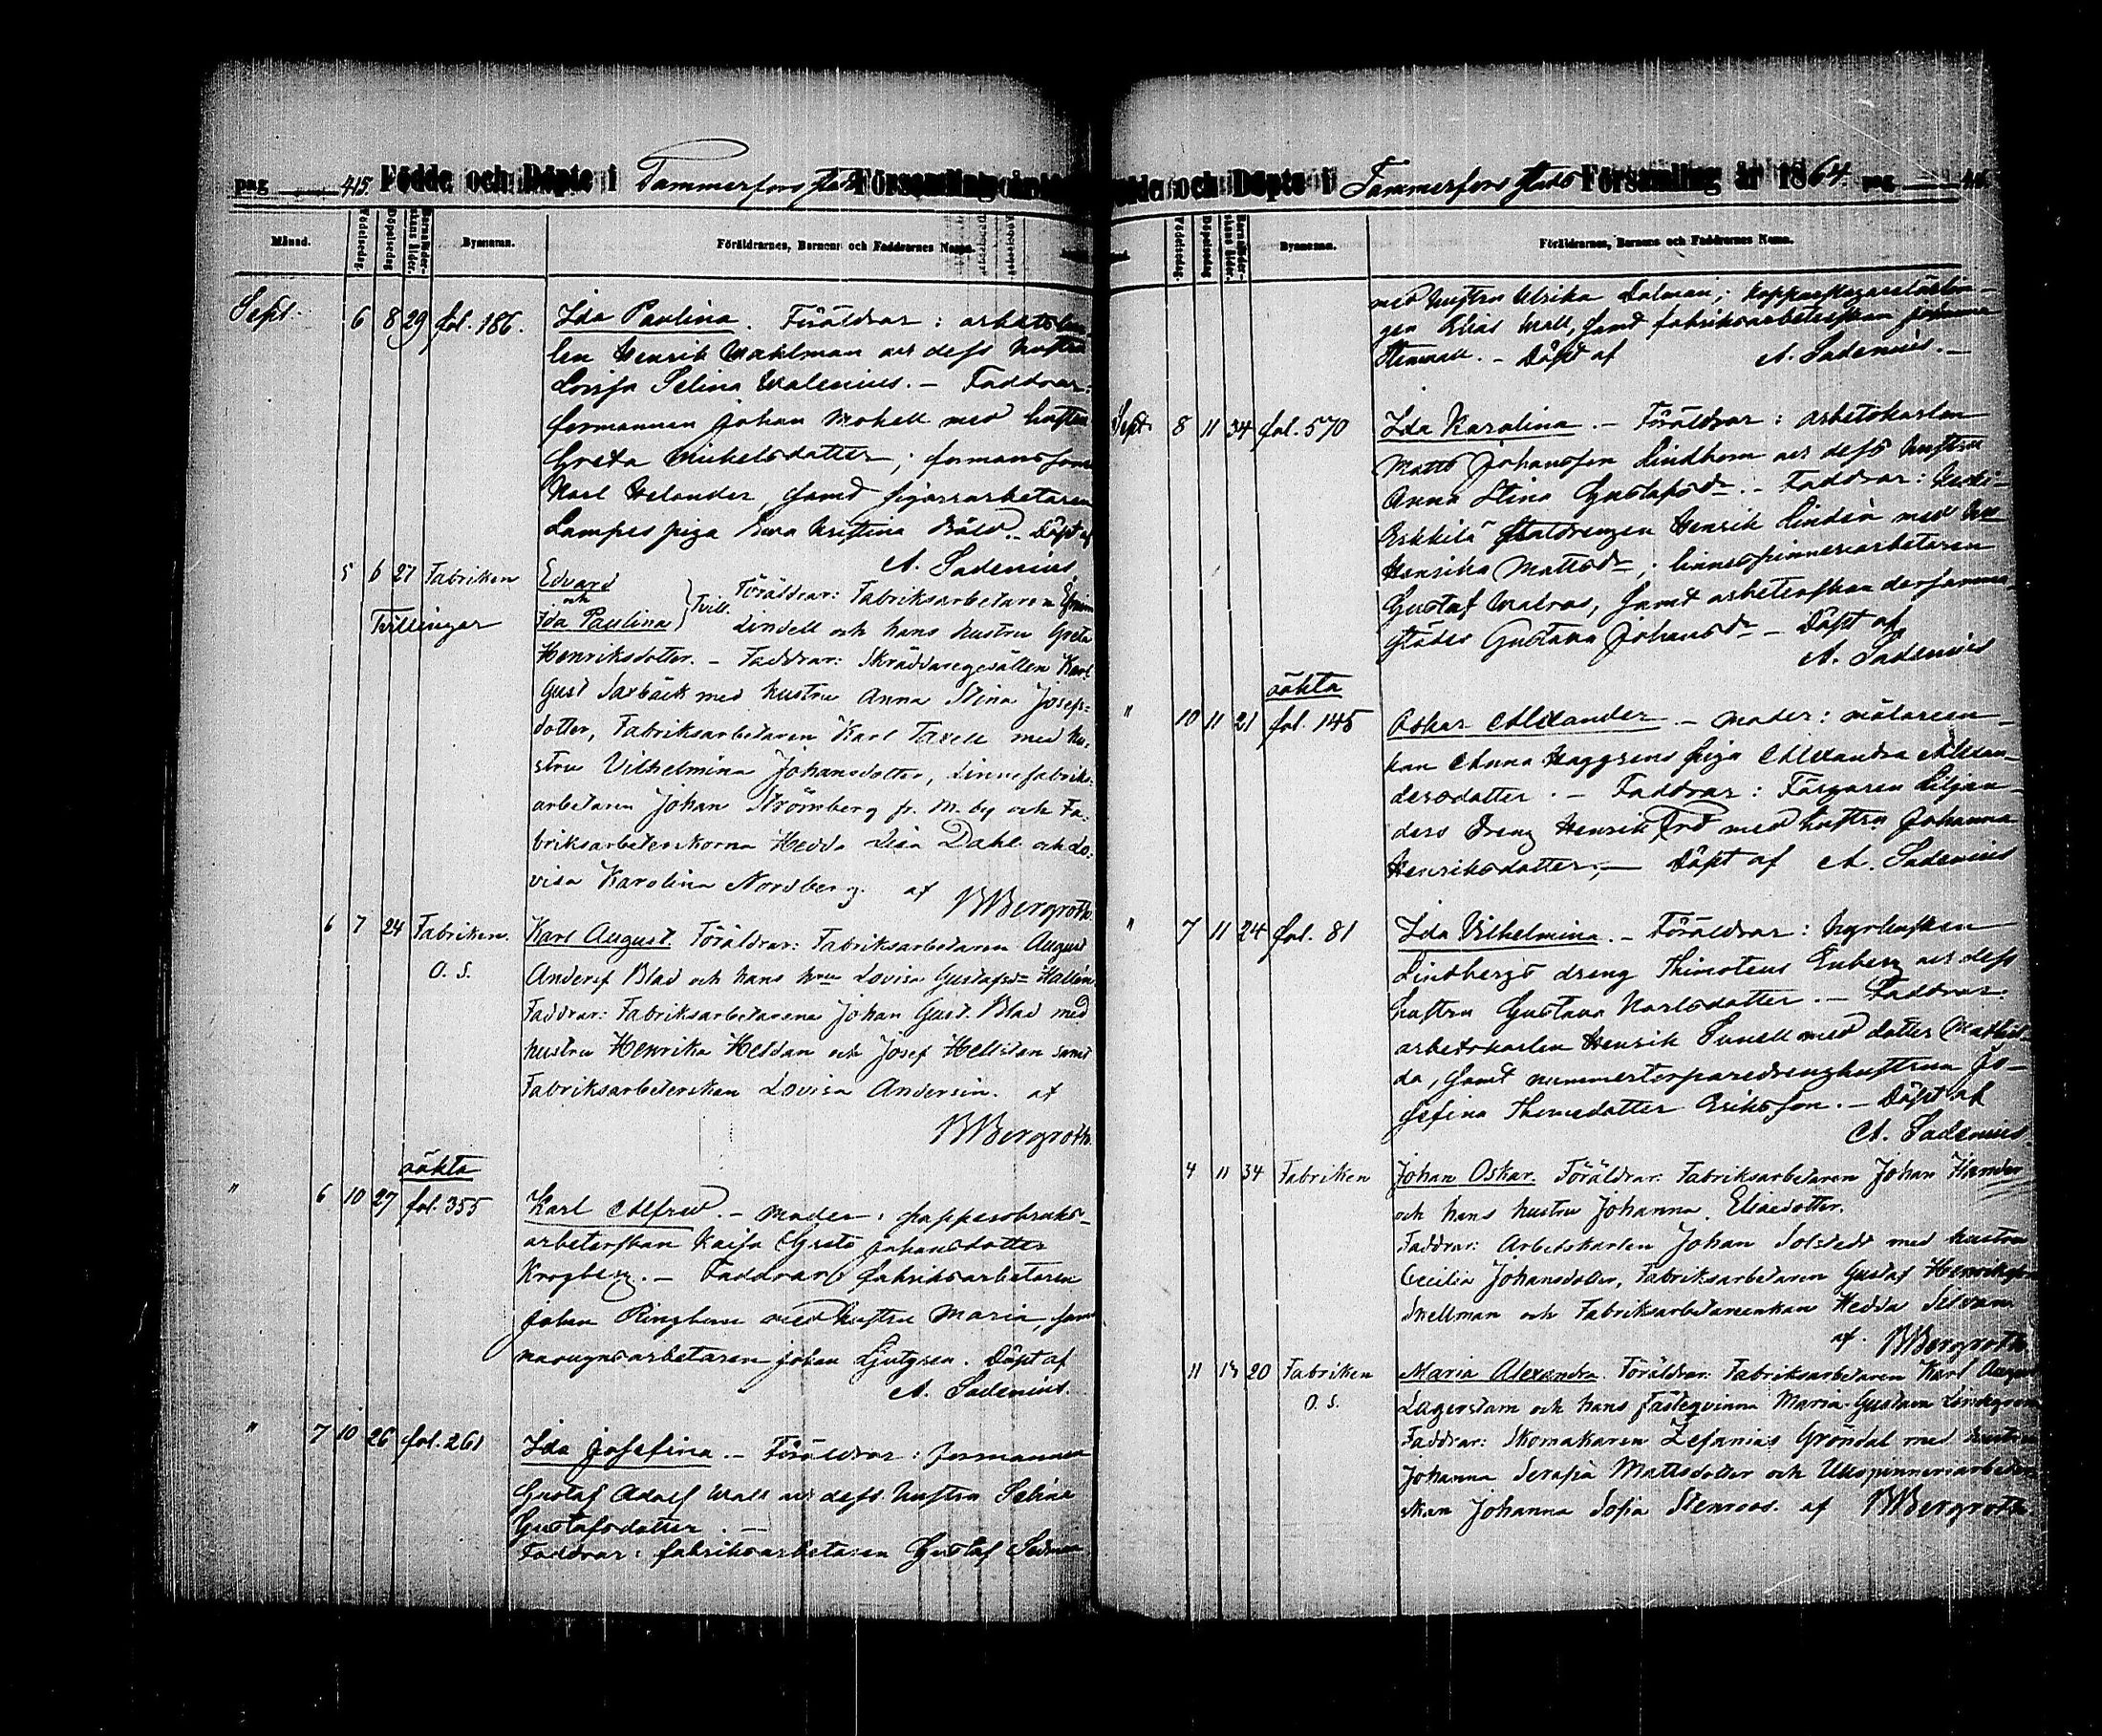 pag 415. Födde och Döpte i Tammerfors stads Församling
Månad. Födelsedag. Döpelsedag Barnaföderskans ålder. Bynamn. Föräldrarnes, Barnens och Faddrarnes Namn.
Sept. 6 8 29 fol. 186. Ida Paulina. Föräldrar: arbetskar-
len Henrik Wahlman och dess hustru
Lovisa Selina Walenius. – Faddrar:
formannen Johan Mokell med hustru
Greta Mickelsdotter; formanssonen
Karl Helander, samt sigarrarbetaren
Lampes piga Eva Kristina Bäld. – Döpt af
A. Sadenius
5 6 27 Fabriken Edvard
och
Tvillingar Ida Paulina } Tvill. Föräldrar: Fabriksarbetaren Efraim
Lindell och hans hustru Greta
Henriksdotter. – Faddrar: Skräddaregesällen Karl
Gust Saxbäck med hustru Anna Stina Josefs=
dotter, Fabriksarbetaren Karl Taxell med hu-
stru Vilhelmina Johansdotter, Linnefabriks-
arbetaren Johan Strömberg fr. M. by och Fa-
briksarbeterskorna Hedda Lisa Dahl och Lo-
visa Karolina Nordberg. af BBergroth.
6 7 24 Fabriken. Karl August. Föräldrar: Fabriksarbetaren August
O. S. Andersf Blad och hans hru Lovisa Gustafsdr Hallén.
Faddrar: Fabriksarbetarena Johan Gust. Blad med
hustru Henrika Heldan och Josef Hellsten samt
Fabriksarbeterskan Lovisa Andersin. af
BBergroth.
oäkta
" 6 10 27 fol. 355 Karl Alfred. – Moder: pappersbruks-
arbeterskan Kajsa Greta Johansdotter
Krogberg. – Faddrar: fabriksarbetaren
Johan Ringbom med hustru Maria, samt
masugnsarbetaren Johan Ljutgren. Döpt af
A. Sadenius.
" 7 10 26 fol. 261 Ida Josefina. – Föräldrar: formannen
Gustaf Adolf Wall och dess hustru Selina
Gustafsdotter. –
Faddrar: fabriksarbetaren Gustaf
Födde och Döpte i Tammerfors stads Församling år 1864. pag
Födelsedag. Döpelsedag Barnaföderskans ålder. Bynamn. Föräldrarnes, Barnens och Faddrarnes Namn.
med hustru Ulrika Dalman; kopparslagarelärlin-
gen Elias Wall, samt fabriksarbeterskan Johanna
Stenvall. – Döpt af A. Sadenius. –
Sept. 8 11 34 fol. 570 Ida Karolina. – Föräldrar: arbetskarlen
Matts Johansson Lindbom och dess hustru
Anna Stina Gustafsdr. – Faddrar:
Erkkilä statdrengen Henrik Lindén med hu-
Henrika Mattsdr; linnespinneriarbetaren
Gustaf Walros, samt arbeterskan dersamma-
städes Gustava Johansdr – Döpt af
A. Sadenius
oäkta
" 10 11 21 fol. 145 Oskar Alexander. – Moder: målareen-
kan Anna Haggrens piga Alexandra Alexan-
dersdotter. – Faddrar: Färgaren Liljan-
ders dreng Henrik Frö med hustru Johanna
Henriksdotter, – Döpt af A. Sadenius
" 7 11 24 fol. 81 Ida Vilhelmina. – Föräldrar: hyrkusken
Lindbergs dreng Thimoteus Enberg och dess
hustru Gustava Karlsdotter. – Faddrar:
arbetskarlen Henrik Sunell med dotter Mathil-
da, samt nummertorparedrenghustrun Jo-
sefina Thomedotter Eriksson. – Döpt af
A. Sadenius
4 11 34 Fabriken Johan Oskar. Föräldrar: Fabriksarbetaren Johan Hamder
och hans hustru Johanna Eliaedotter.
Faddrar: Arbetskarlen Johan Solstedt med hustru
Cecilia Johansdotter, Fabriksarbetaren Gustaf Henriksson
Snellman och Fabriksarbetareenkan Hedda
af. BBergroth.
11 13 20 Fabriken Maria Alexandra. Föräldrar: Fabriksarbetaren Karl August
O. S. Lagerstam och hans fästeqvinna Maria Gustava Lindqvist
Faddrar: Skomakaren Zefanias Gröndal med hustru
Johanna Serafia Mattsdotter och Ullspinneriarbeter-
skan Johanna Sofia Stenroos. af BBergroth